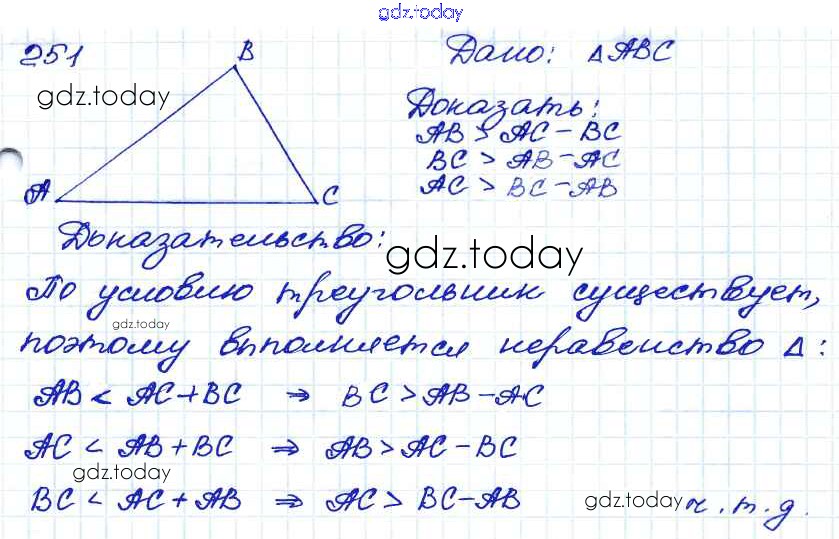 gdz.today
251
B
Дано: △ABC
gdz.today
Доказать:
AB > AC − BC
BC > AB − AC
A
C
AC > BC − AB
Доказательство:
gdz.today
По условию треугольник существует,
gdz.today
поэтому выполняется неравенство △:
AB < AC + BC ⇒ BC > AB − AC
AC < AB + BC ⇒ AB > AC − BC
gdz.today
BC < AC + AB ⇒ AC > BC − AB
gdz.today
ч.т.д.